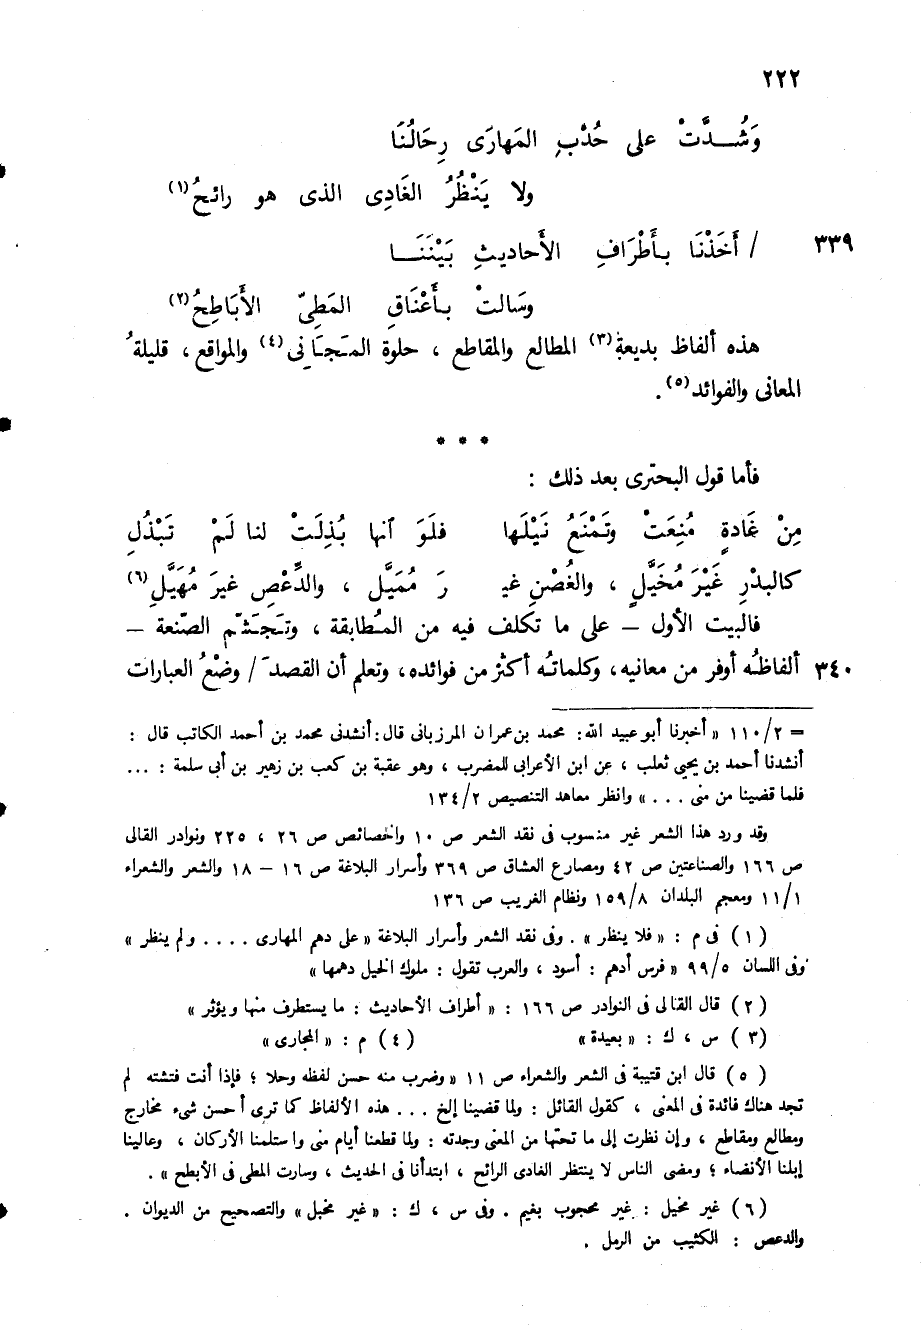 ٢٢٢
وَشُـدَّتْ على حُدْبِ المَهارَى رِحَالُنَا
ولا يَنْظُرُ الغَادِى الذى هو رائحُ(١)
٣٣٩ / أَخَذْنَا بـأَطْرَافِ الأَحاديثِ بَيْنَنَـا
وسَالتْ بـأَعْنَاقِ المَطِىّ الأَبَاطِحُ(٢)
هذه ألفاظ بديعة(٣) المطالع والمقاطع ، حلوة المَجَانِى(٤) والمواقع ، قليلةُ
المعانى والفوائد(٥) .
* * *
فأما قول البحترى بعد ذلك :
مِنْ غَادةٍ مُنِعَتْ وتَمْنَعُ نَيْلَها فلَوَ آنها بُذِلَتْ لنا لَمْ تَبْذُلِ
كالبدْرِ غَيْرَ مُخَيَّلٍ ، والغُصْنِ غيـ رَ مُمَيَّلٍ ، والدِّعْصِ غيرَ مُهَيَّلِ(٦)
فالبيت الأول – على ما تكلف فيه من المُطابقة ، وتَجَشّم الصّنعة –
٣٤٠ ألفاظُه أوفر من معانيه، وكلماتُه أكثر من فوائده، وتعلم أن القصدَ / وضْعُ العبارات
= ٢/١١٠ « أخبرنا أبو عبيد الله: محمد بن عمران المرزبانى قال: أنشدنى محمد بن أحمد الكاتب قال :
أنشدنا أحمد بن يحيى ثعلب ، عن ابن الأعرابى للمضرب ، وهو عقبة بن كعب بن زهير بن أبى سلمة : ...
فلما قضينا من منى ... » وانظر معاهد التنصيص ٢/١٣٤
وقد ورد هذا الشعر غير منسوب فى نقد الشعر ص ١٠ والخصائص ص ٢٦ ، ٢٢٥ ونوادر القالى
ص ١٦٦ والصناعتين ص ٤٢ ومصارع العشاق ص ٣٦٩ وأسرار البلاغة ص ١٦ – ١٨ والشعر والشعراء
١/١١ ومعجم البلدان ٨/١٥٩ ونظام الغريب ص ١٣٦
(١) فى م : « فلا ينظر » . وفى نقد الشعر وأسرار البلاغة « على دهم المهارى .... ولم ينظر »
وفى اللسان ٥/٩٩ « فرس أدهم : أسود ، والعرب تقول : ملوك الخيل دهمها »
(٢) قال القالى فى النوادر ص ١٦٦ : « أطراف الأحاديث : ما يستطرف منها ويؤثر »
(٣) س ، ك : « بعيدة » (٤) م : « المجارى »
(٥) قال ابن قتيبة فى الشعر والشعراء ص ١١ « وضرب منه حسن لفظه وحلا ؛ فإذا أنت فتشته لم
تجد هناك فائدة فى المعنى ، كقول القائل : ولما قضينا إلخ ... هذه الألفاظ كما ترى أحسن شىء مخارج
ومطالع ومقاطع ، وإن نظرت إلى ما تحتها من المعنى وجدته : ولما قطعنا أيام منى واستلمنا الأركان ، وعالينا
إبلنا الأنضاء ؛ ومضى الناس لا ينتظر الغادى الرائح ، ابتدأنا فى الحديث ، وسارت المطى فى الأبطح » .
(٦) غير مخيل : غير محجوب بغيم . وفى س ، ك : « غير مخبل » والتصحيح من الديوان .
والدعص : الكثيب من الرمل .